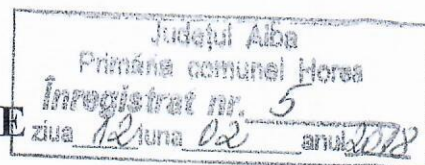 Județul Alba
Primăria comunei Horea
Înregistrat nr. 5
E ziua 12 luna 02 anul 2018